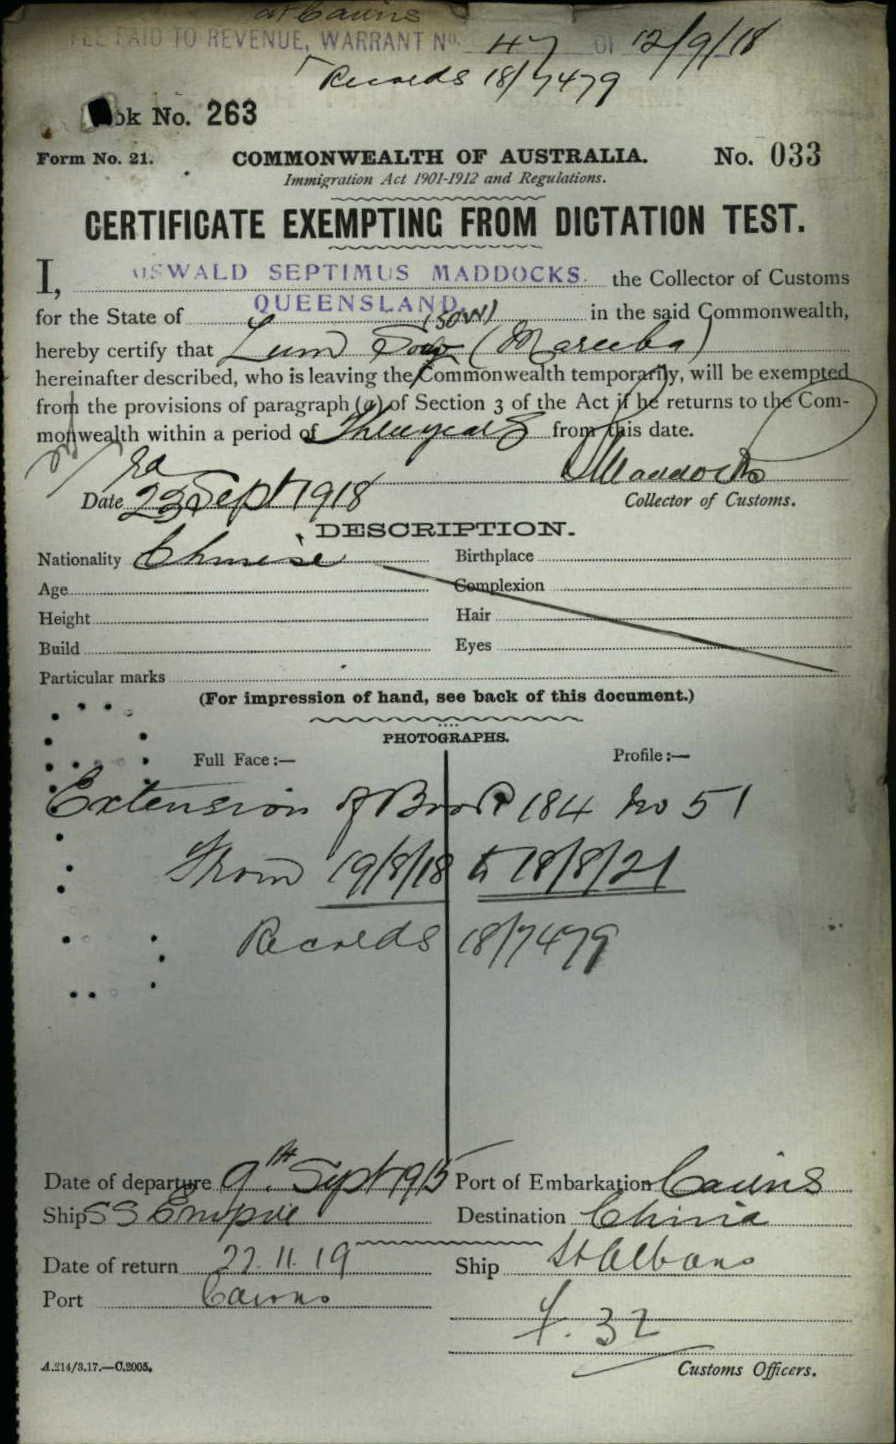 at Cairns
FEE PAID TO REVENUE, WARRANT No. 47 OF 12/9/18
Records 18/7479
ok No. 263
Form No. 21. COMMONWEALTH OF AUSTRALIA. No. 033
Immigration Act 1901-1912 and Regulations.
CERTIFICATE EXEMPTING FROM DICTATION TEST.
I, OSWALD SEPTIMUS MADDOCKS. the Collector of Customs
for the State of QUEENSLAND in the said Commonwealth,
(SOW)
hereby certify that Lum Sow (Mareeba)
hereinafter described, who is leaving the Commonwealth temporarily, will be exempted
from the provisions of paragraph (a) of Section 3 of the Act if he returns to the Com-
monwealth within a period of Three years from this date.
Maddocks
Date 23rd Sept 1918 Collector of Customs.
DESCRIPTION.
Nationality Chinese Birthplace
Age Complexion
Height Hair
Build Eyes
Particular marks
(For impression of hand, see back of this document.)
PHOTOGRAPHS.
Full Face:— Profile:—
Extension of Book 184 No 51
From 19/8/18 to 18/8/21
Records 18/7479
Date of departure 9th Sept 1915 Port of Embarkation Cairns
Ship SS Empire Destination China
Date of return 22.11.19 Ship St Albans
Port Cairns
f. 32
A.214/3.17.—C.2005. Customs Officers.